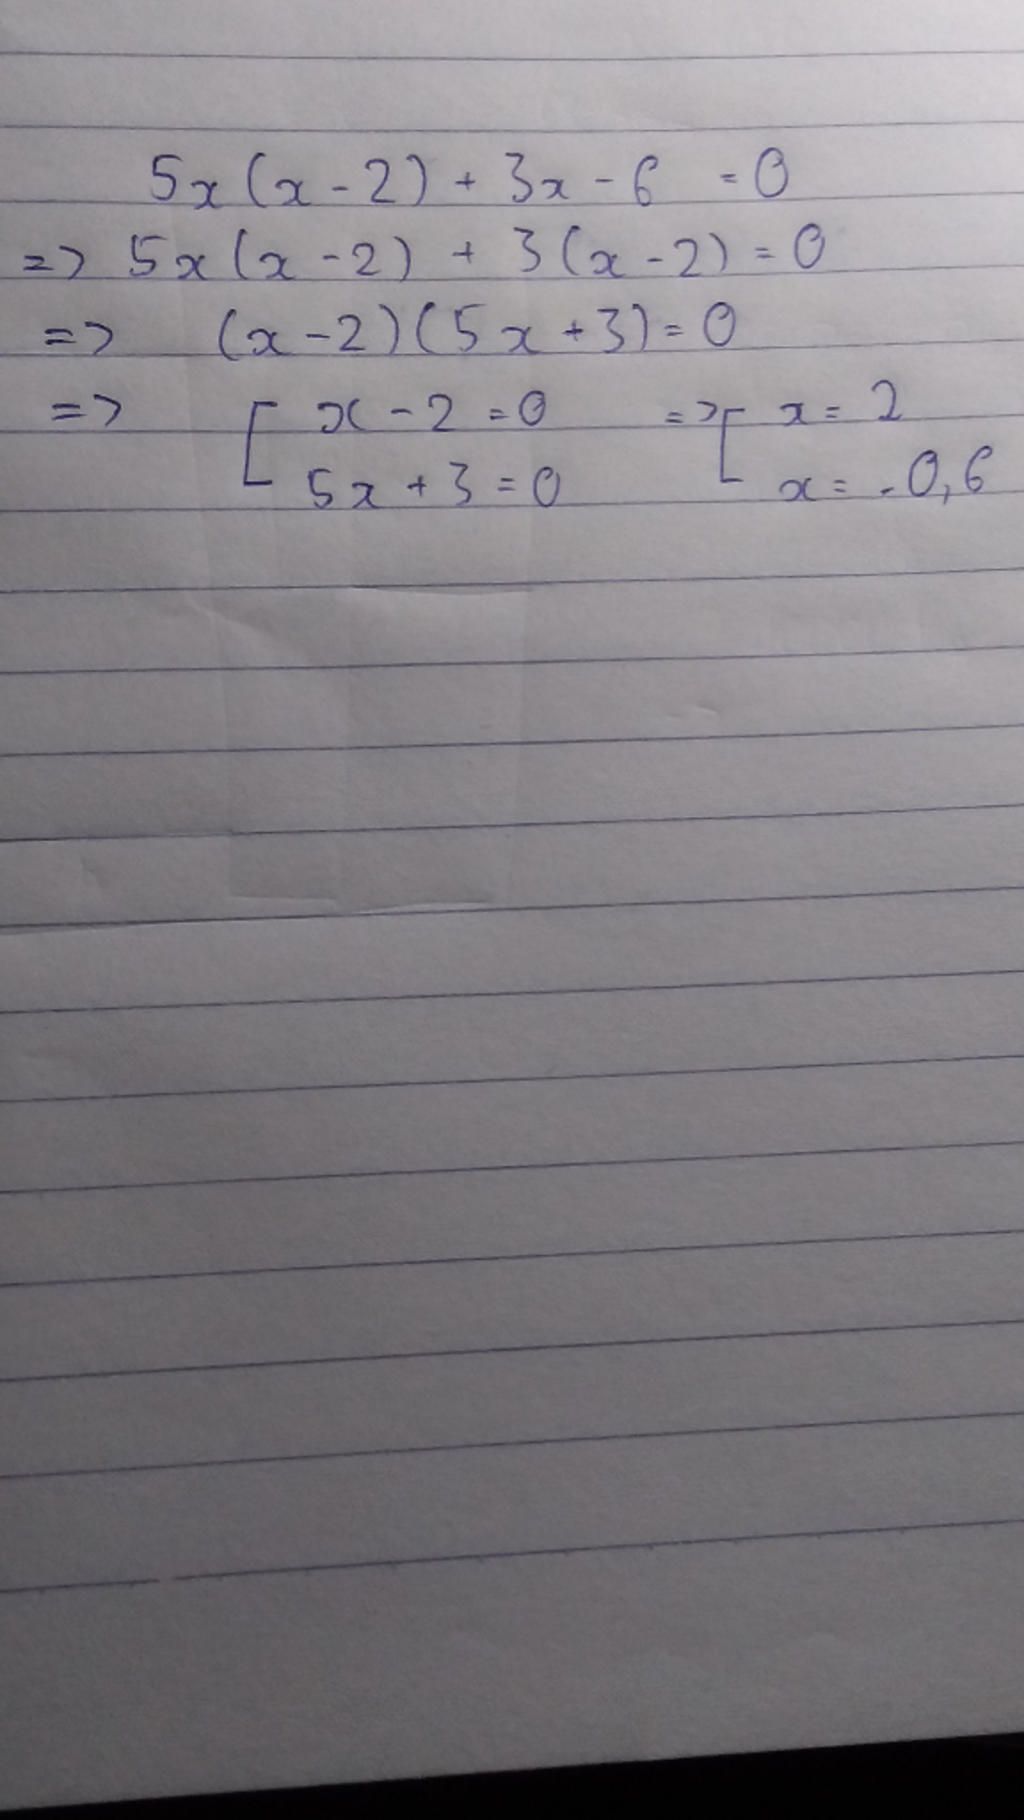 5x(x-2) + 3x - 6 = 0
=> 5x(x-2) + 3(x-2) = 0
=> (x-2)(5x+3) = 0
=> [ x-2 = 0 => [ x = 2
5x+3 = 0 x = -0,6